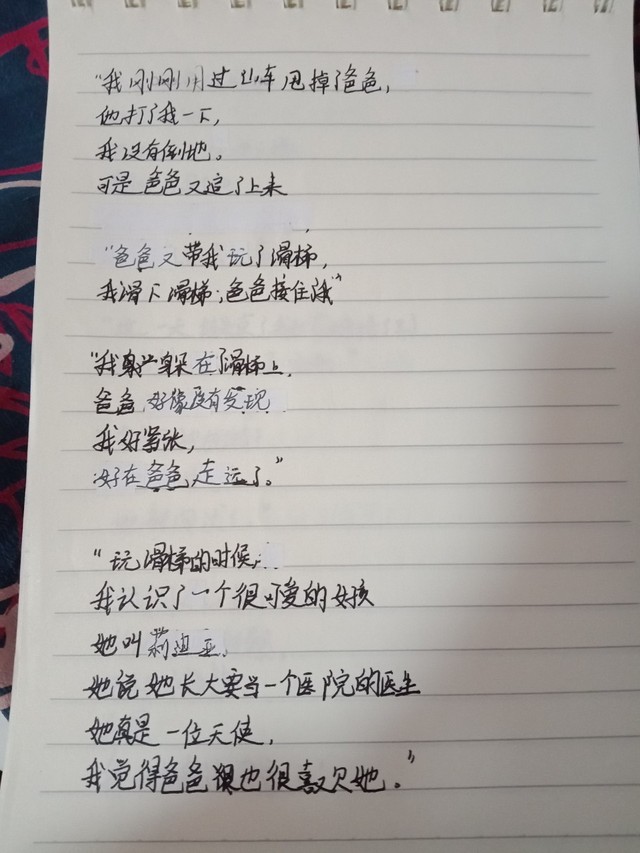 “我刚刚用过山车甩掉了爸爸,
他打了我一下,
我没有倒地。
可是爸爸又追了上来
“爸爸又带我玩了滑梯,
我滑下滑梯,爸爸接住我”
“我躲在了滑梯上,
爸爸好像没有发现
我好紧张,
好在爸爸走远了。”
“玩滑梯的时候,
我认识了一个很可爱的女孩
她叫莉迪亚,
她说她长大要当一个医院的医生
她真是一位天使,
我觉得爸爸也很喜欢她。”